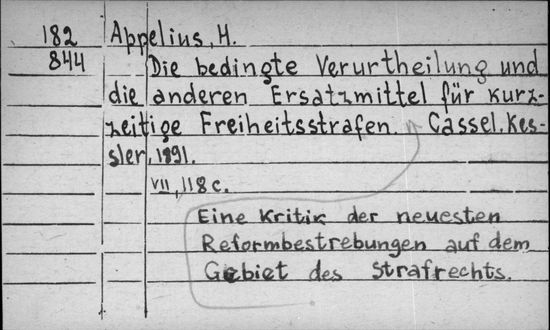 182 Appelius, H.
844 Die bedingte Verurtheilung und
die anderen Ersatzmittel für kurz-
zeitige Freiheitsstrafen. Cassel. Kes-
sler, 1891.
VII, 118 c.
Eine Kritik der neuesten
Reformbestrebungen auf dem
Gebiet des Strafrechts.